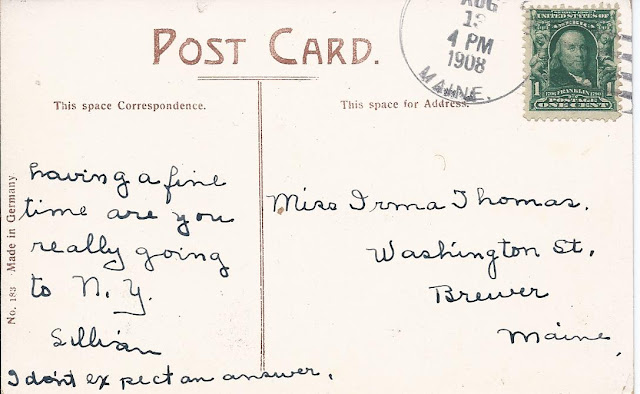 POST CARD.
AUG
4 PM
1908
MAINE.
UNITED STATES OF
AMERICA
1 FRANKLIN 1
POSTAGE
ONE CENT
This space Correspondence.
This space for Address.
No. 183 Made in Germany
having a fine
time are you
really going
to N. Y.
Lillian
I don't expect an answer.
Miss Irma Thomas.
Washington St.
Brewer
Maine.